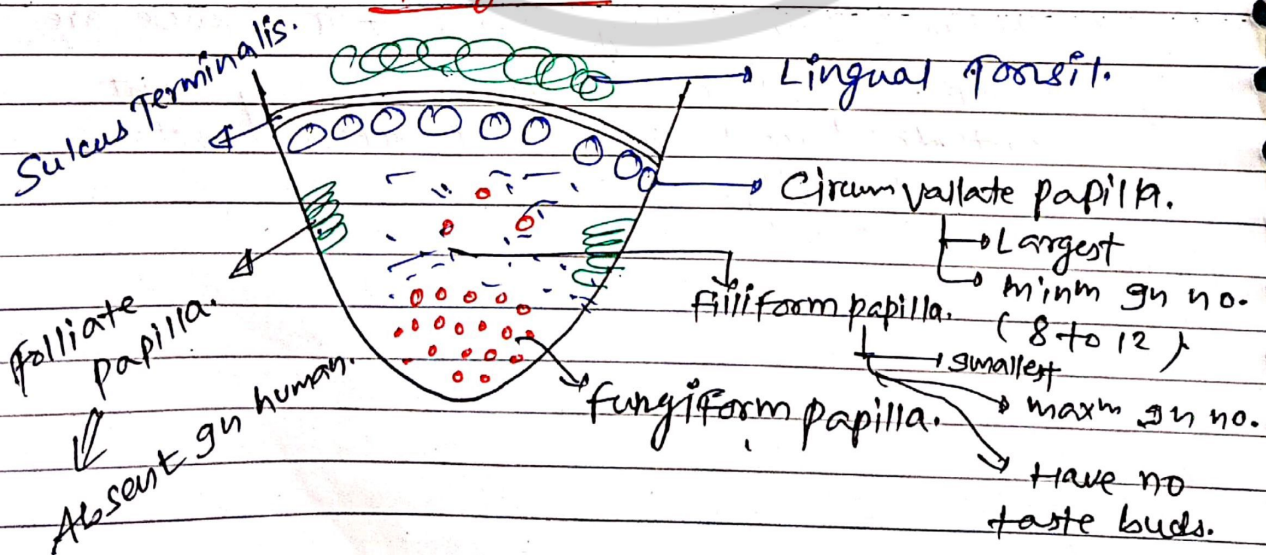 Sulcus Terminalis.
Lingual Tonsil.
Circum vallate papilla.
Largest
minm In no.
(8 to 12)
filliform papilla.
smallest
maxm In no.
Have no
taste buds.
fungiform papilla.
folliate
papilla.
Absent In human.